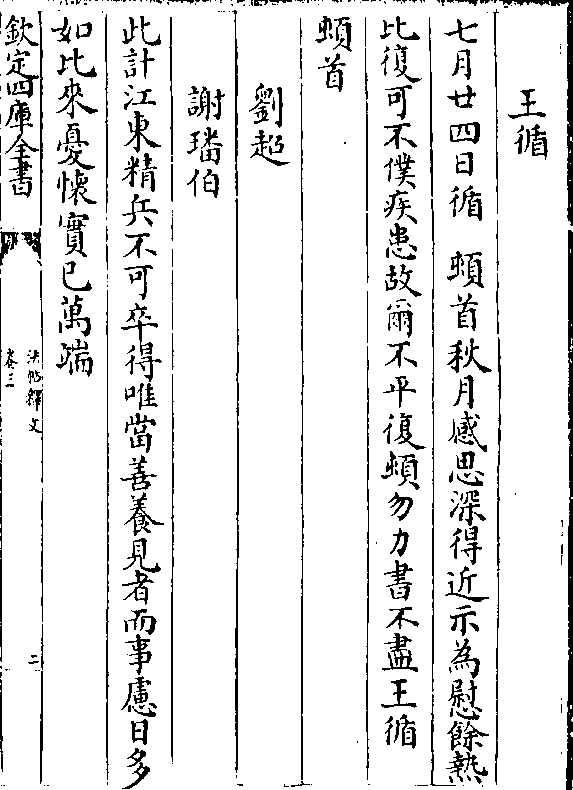 王循
七月廿四日循　頓首秋月感思深得近示為慰餘熱
比復可不僕疾患故爾不平復頓勿力書不盡王循
頓首
劉超
謝璠伯
此計江東精兵不可卒得唯當善養見者而事慮日多
如比來憂懷實已萬端
欽定四庫全書
法帖釋文
卷三
二